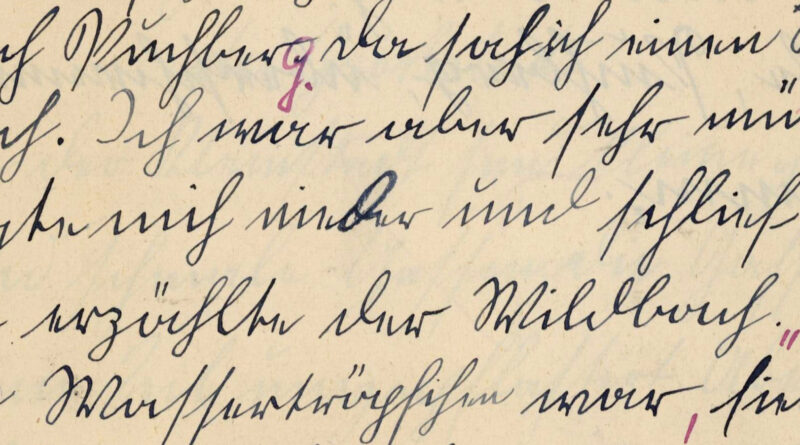 ch Puchberg. Da sah ich einen
ch. Ich war aber sehr mü
gte mich nieder und schlief
erzählte der Wildbach."
Wassertröpfchen war, sie